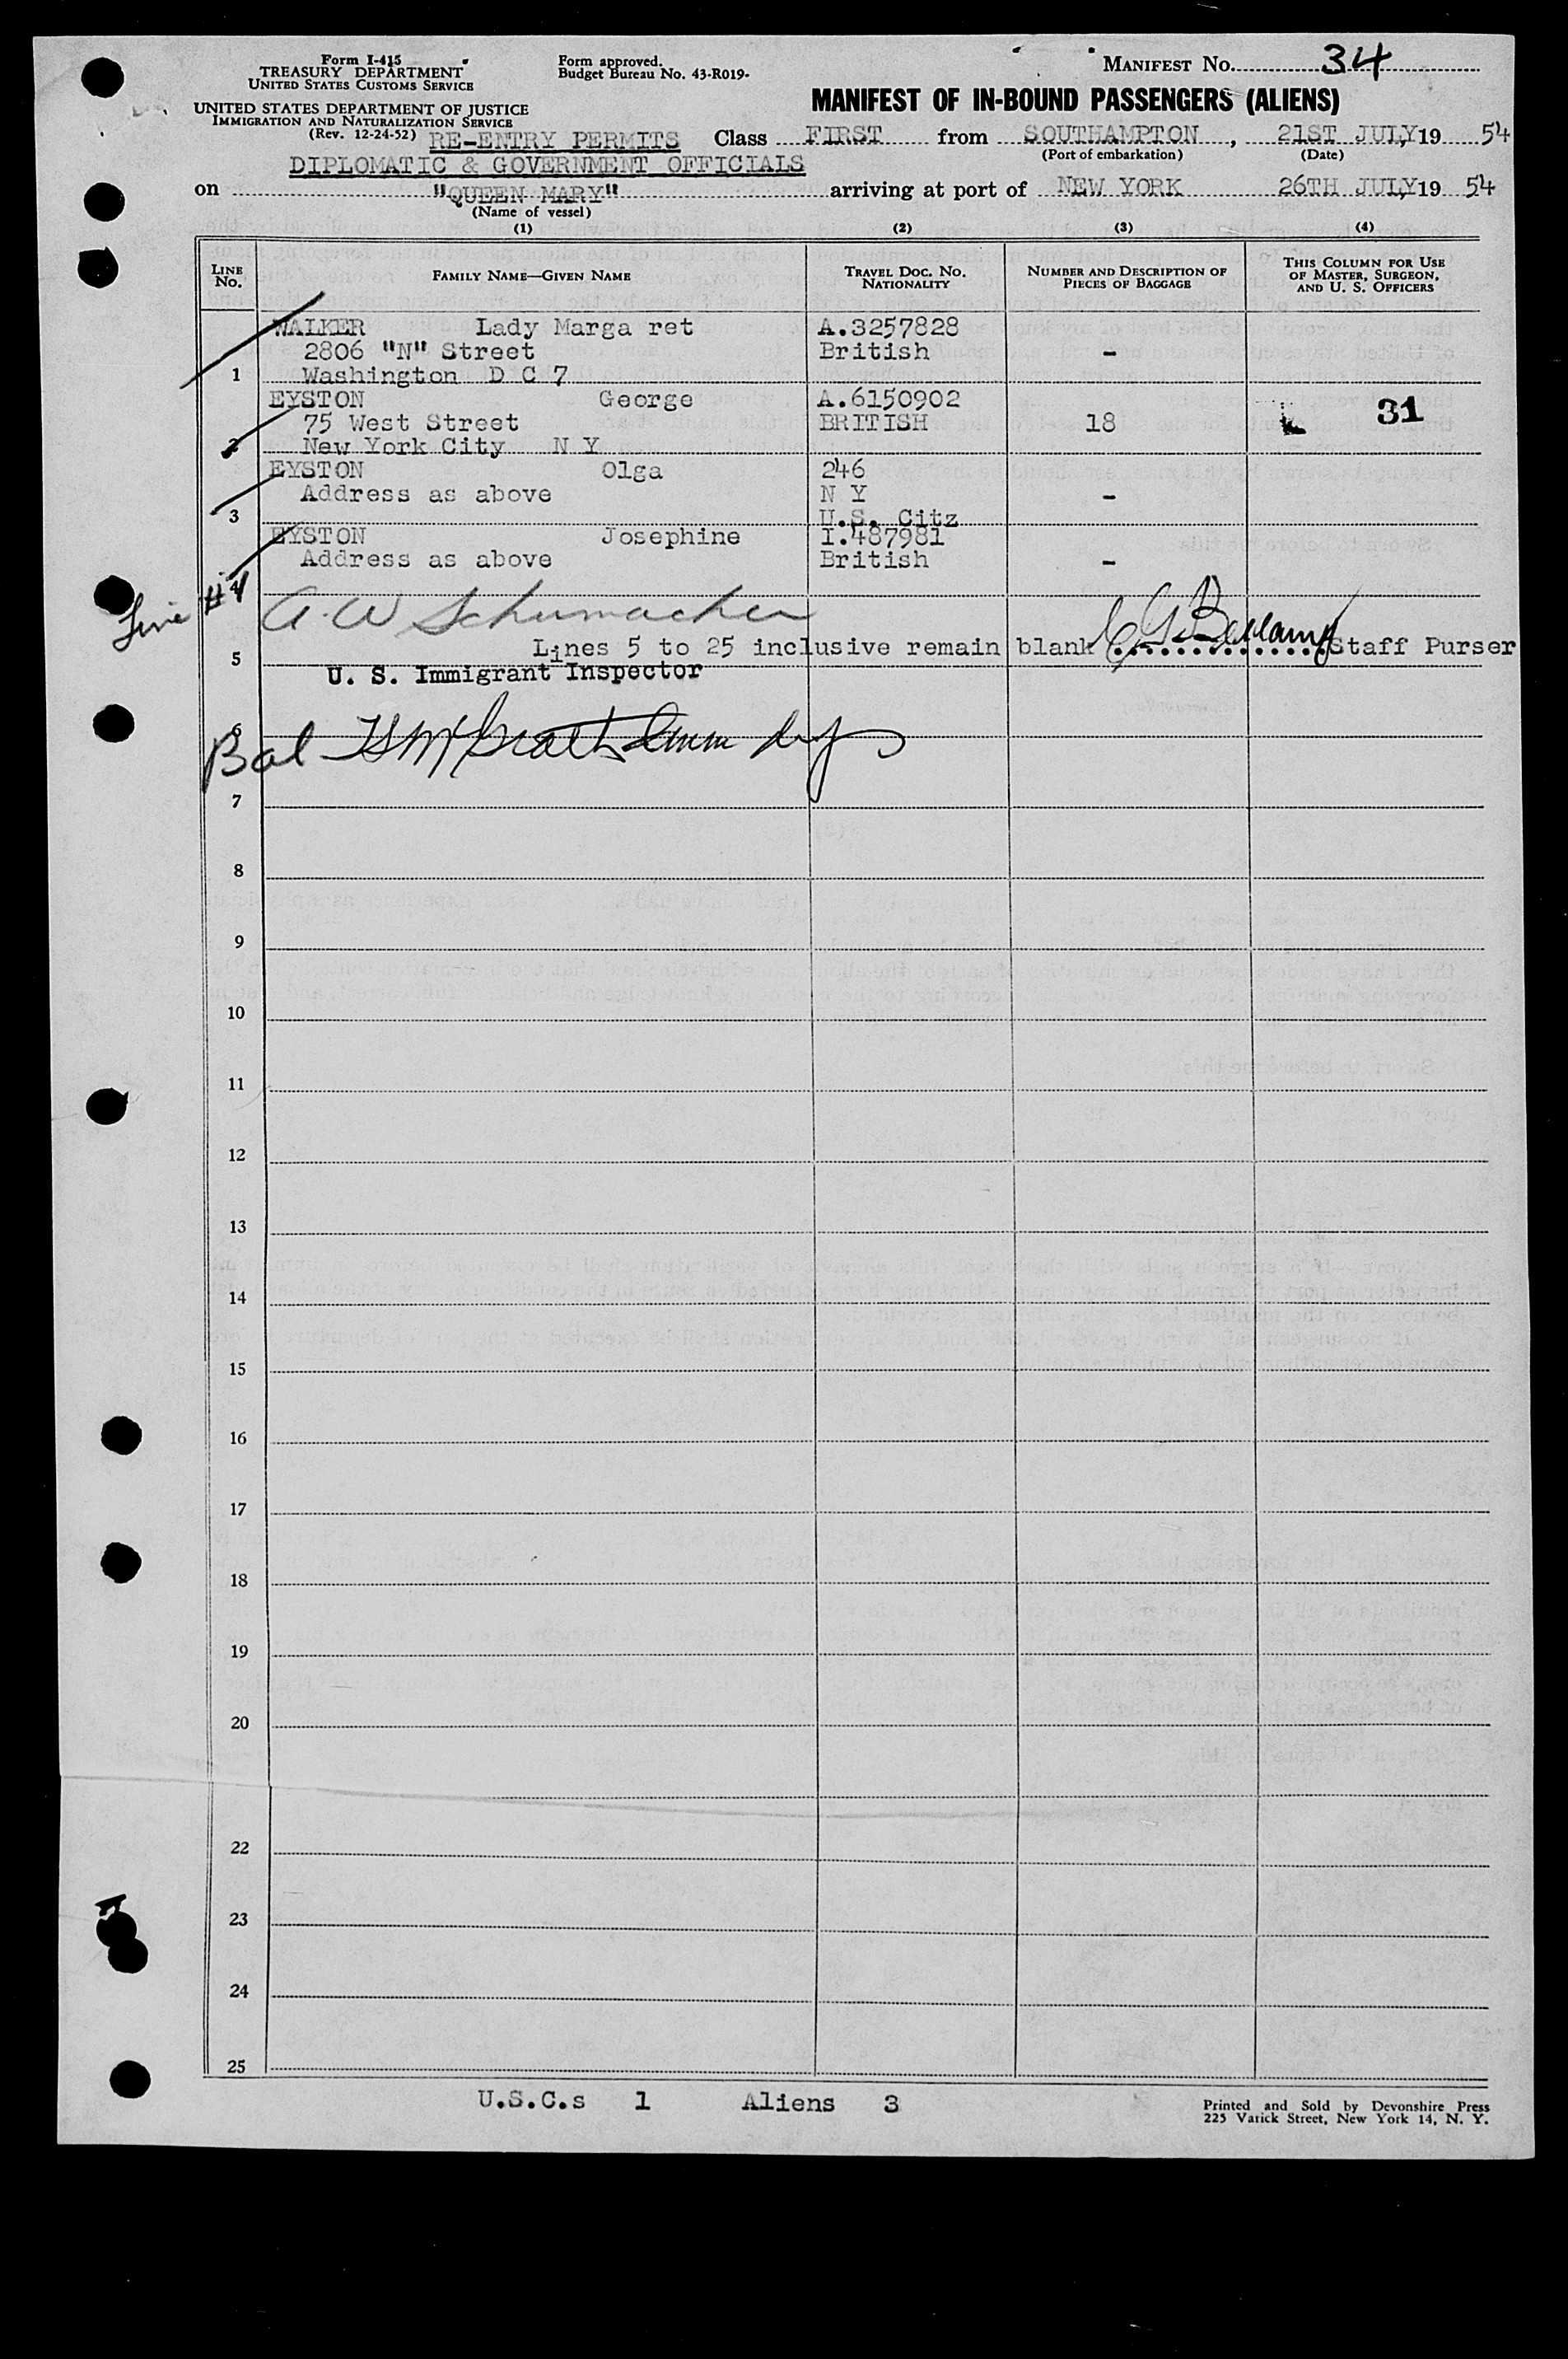 Form I-415
TREASURY DEPARTMENT
UNITED STATES CUSTOMS SERVICE
UNITED STATES DEPARTMENT OF JUSTICE
IMMIGRATION AND NATURALIZATION SERVICE
(Rev. 12-24-52)
Form approved.
Budget Bureau No. 43-R019-
MANIFEST No. 34
MANIFEST OF IN-BOUND PASSENGERS (ALIENS)
RE-ENTRY PERMITS Class FIRST from SOUTHAMPTON, 21ST JULY, 19 54
(Port of embarkation) (Date)
DIPLOMATIC & GOVERNMENT OFFICIALS
on "QUEEN MARY" arriving at port of NEW YORK 26TH JULY, 19 54
(Name of vessel)
(1) (2) (3) (4)
LINE No. FAMILY NAME—GIVEN NAME TRAVEL DOC. No. NATIONALITY NUMBER AND DESCRIPTION OF PIECES OF BAGGAGE THIS COLUMN FOR USE OF MASTER, SURGEON, AND U. S. OFFICERS
WALKER Lady Marga ret A.3257828
2806 "N" Street British -
1 Washington D C 7
EYSTON George A.6150902
75 West Street BRITISH 18 31
2 New York City N Y
EYSTON Olga 246
Address as above N Y -
3 U.S. Citz
EYSTON Josephine I.487981
Address as above British -
4
Line #4 A. W Schumacher
5 Lines 5 to 25 inclusive remain blank Staff Purser
U. S. Immigrant Inspector
6
Bal
7
8
9
10
11
12
13
14
15
16
17
18
19
20
22
23
24
25
U.S.C.s 1 Aliens 3
Printed and Sold by Devonshire Press
225 Varick Street, New York 14, N. Y.